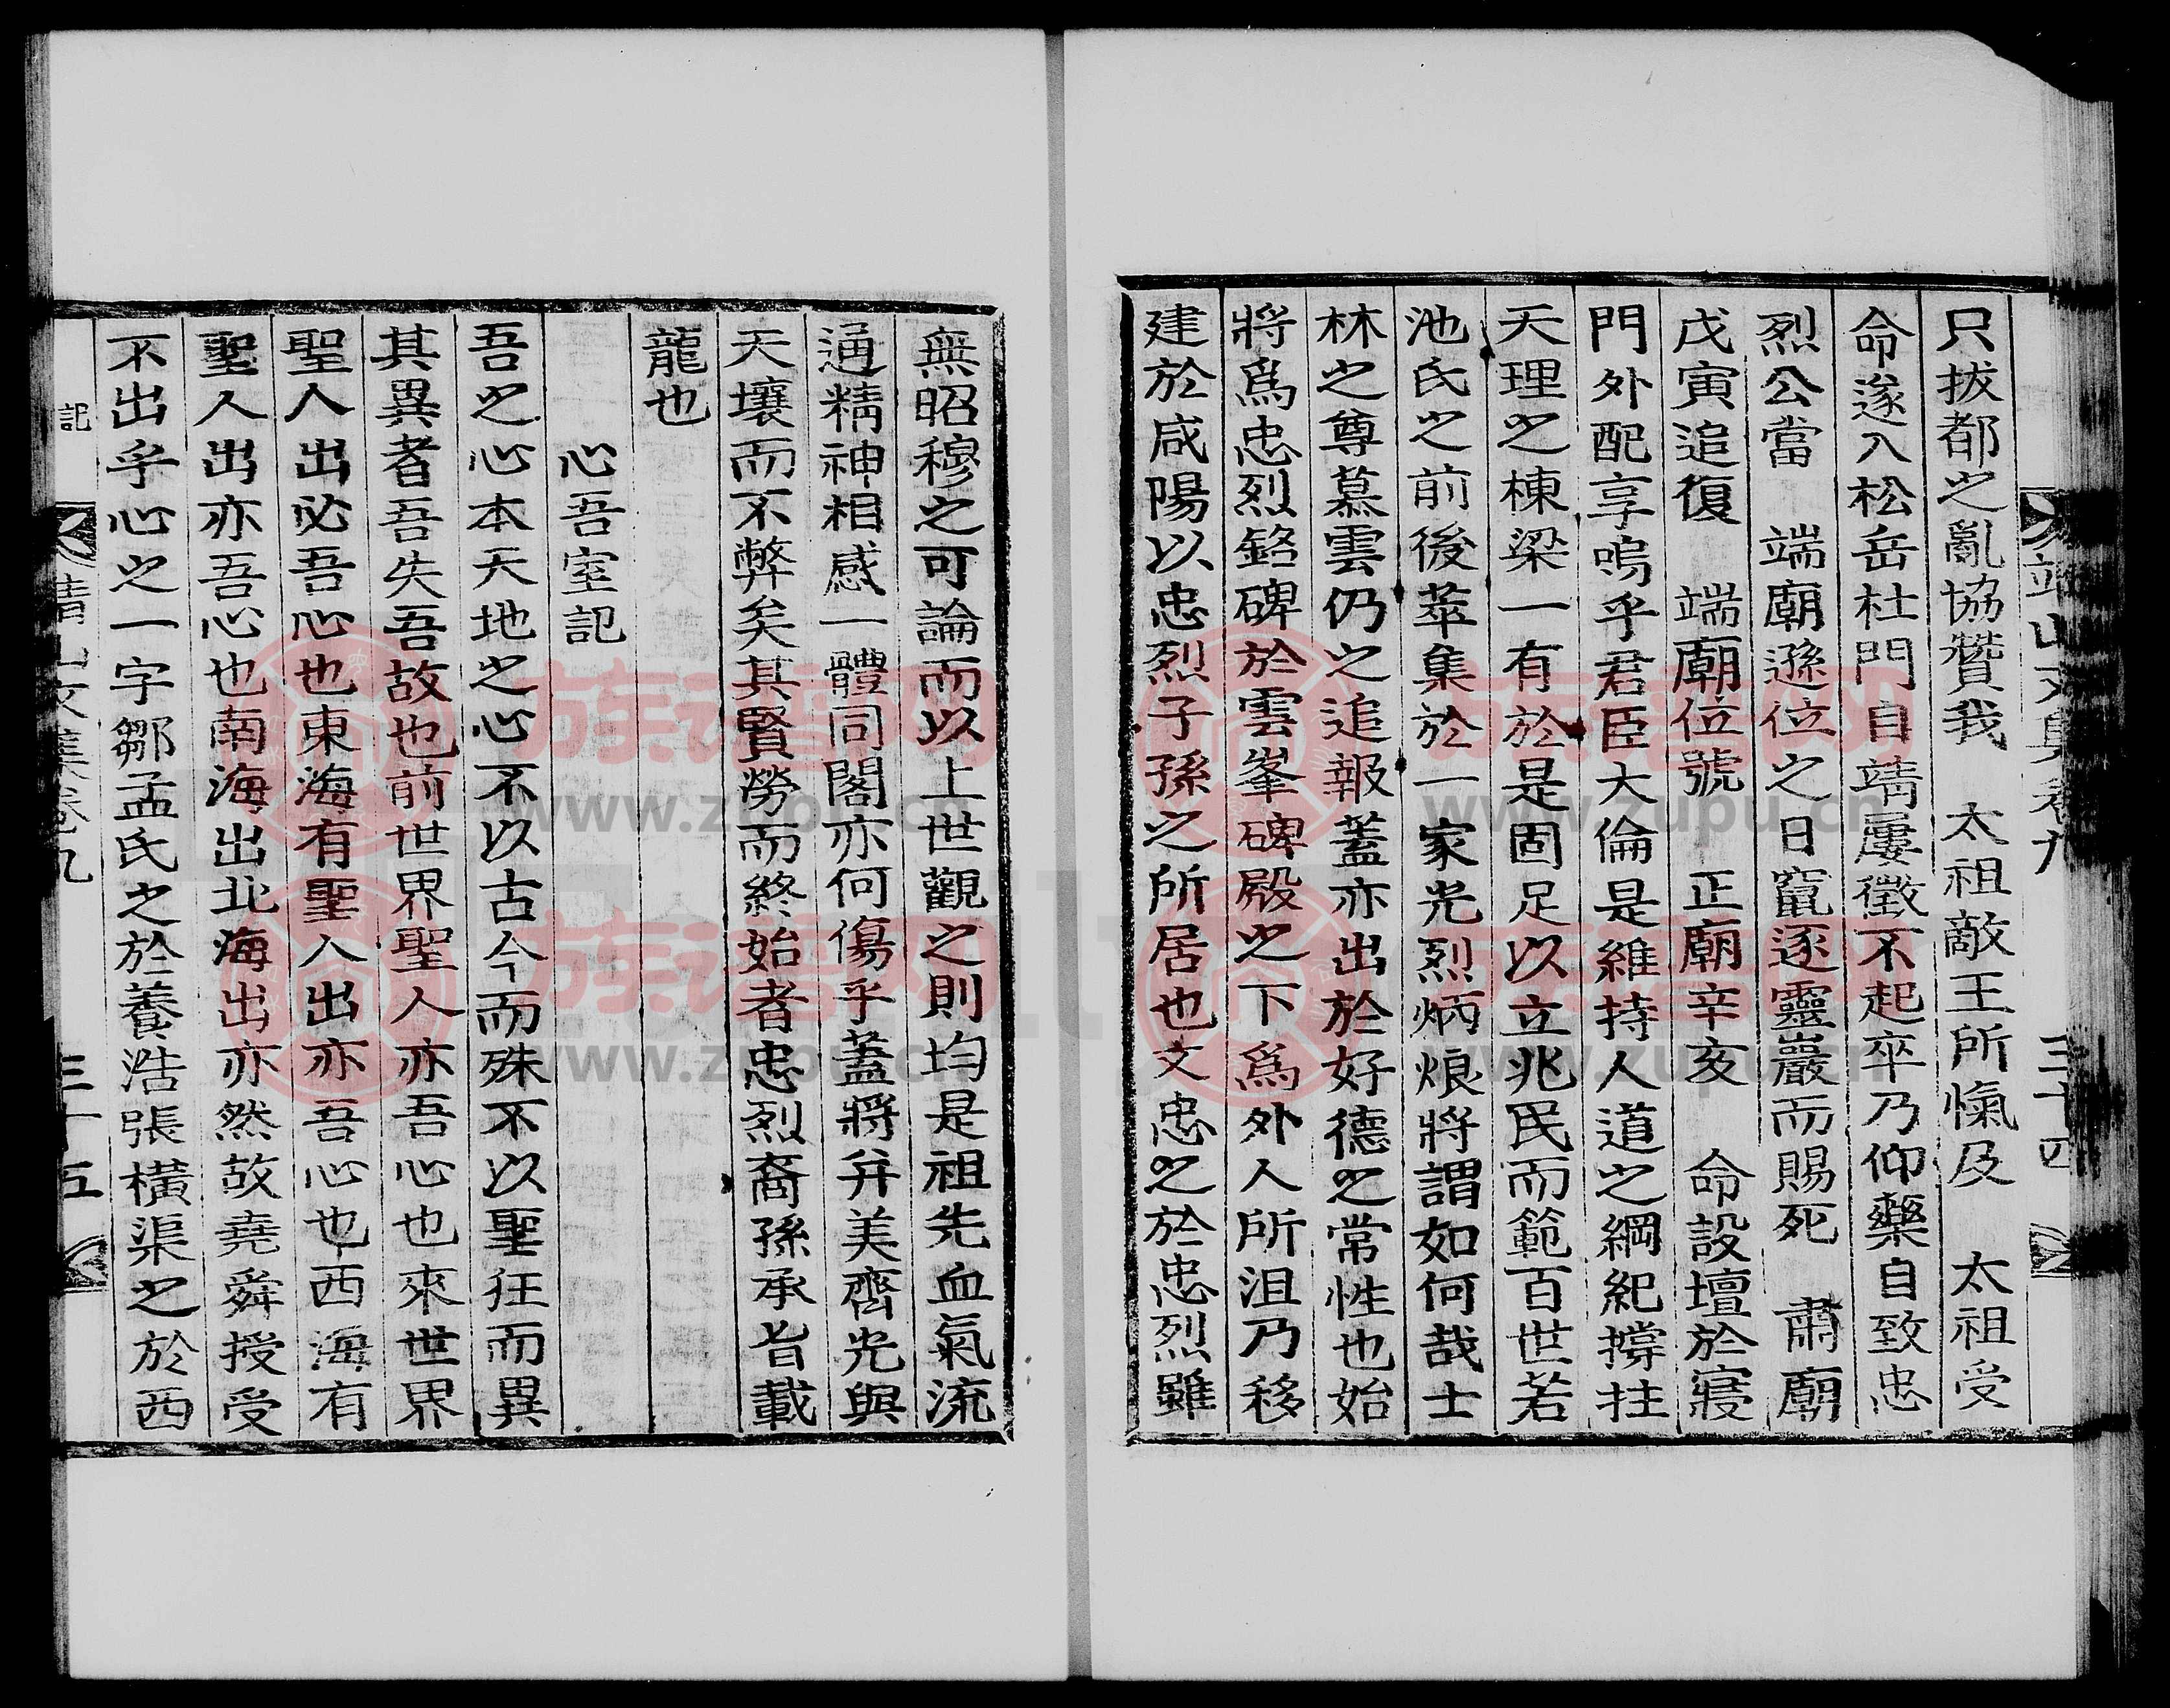 只拔都之亂協贊我　太祖敵王所愾及　太祖受
命遂入松岳杜門自靖屢徵不起卒乃仰藥自致忠
烈公當　端廟遜位之日竄逐靈巖而賜死　肅廟
戊寅追復　端廟位號　正廟辛亥　命設壇於寢
門外配享嗚乎君臣大倫是維持人道之綱紀撐拄
天理之棟梁一有於是固足以立兆民而範百世若
池氏之前後萃集於一家光烈炳烺將謂如何哉士
林之尊慕雲仍之追報蓋亦出於好德之常性也始
將爲忠烈銘碑於雲峯碑殿之下爲外人所沮乃移
建於咸陽以忠烈子孫之所居也文忠之於忠烈雖
無昭穆之可論而以上世觀之則均是祖先血氣流
通精神相感一體同閣亦何傷乎蓋將幷美齊光與
天壤而不弊矣其賢勞而終始者忠烈裔孫承旨載
龍也
心吾室記
吾之心本天地之心不以古今而殊不以聖狂而異
其異者吾失吾故也前世界聖人亦吾心也來世界
聖人出必吾心也東海有聖人出亦吾心也西海有
聖人出亦吾心也南海出北海出亦然故堯舜授受
不出乎心之一字鄒孟氏之於養浩張橫渠之於西
記
三十五
族谱网
www.zupu.cn
族谱网
www.zupu.cn
族谱网
www.zupu.cn
族谱网
www.zupu.cn